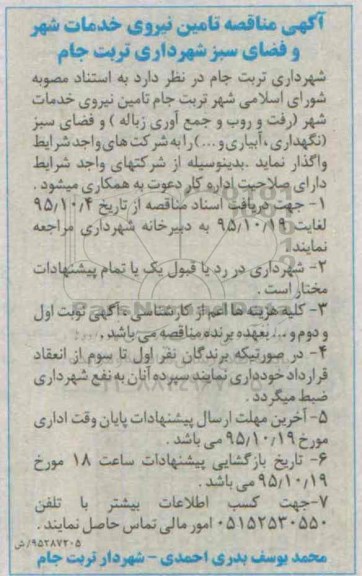 آگهی مناقصه تامین نیروی خدمات شهر
و فضای سبز شهرداری تربت جام
شهرداری تربت جام در نظر دارد به استناد مصوبه
شورای اسلامی شهر تربت جام تامین نیروی خدمات
شهر (رفت و روب و جمع آوری زباله ) و فضای سبز
(نگهداری، آبیاری و ...) را به شرکت های واجد شرایط
واگذار نماید .بدینوسیله از شرکتهای واجد شرایط
دارای صلاحیت اداره کار دعوت به همکاری میشود .
۱- جهت دریافت اسناد مناقصه از تاریخ ۹۵/۱۰/۴
لغایت ۹۵/۱۰/۱۹ به دبیرخانه شهرداری مراجعه
نمایند.
۲- شهرداری در رد یا قبول یک یا تمام پیشنهادات
مختار است .
۳- کلیه هزینه ها اعم از کارشناسی ، آگهی نوبت اول
و دوم و ... بعهده برنده مناقصه می باشد .
۴- در صورتیکه برندگان نفر اول تا سوم از انعقاد
قرارداد خودداری نمایند سپرده آنان به نفع شهرداری
ضبط میگردد .
۵- آخرین مهلت ارسال پیشنهادات پایان وقت اداری
مورخ ۹۵/۱۰/۱۹ می باشد .
۶- تاریخ بازگشایی پیشنهادات ساعت ۱۸ مورخ
۹۵/۱۰/۱۹ می باشد .
۷-جهت کسب اطلاعات بیشتر با تلفن
۰۵۱۵۲۵۳۰۵۵۰ امور مالی تماس حاصل نمایند .
۹۵۲۸۷۲۰۵/ش
محمد یوسف بدری احمدی - شهردار تربت جام